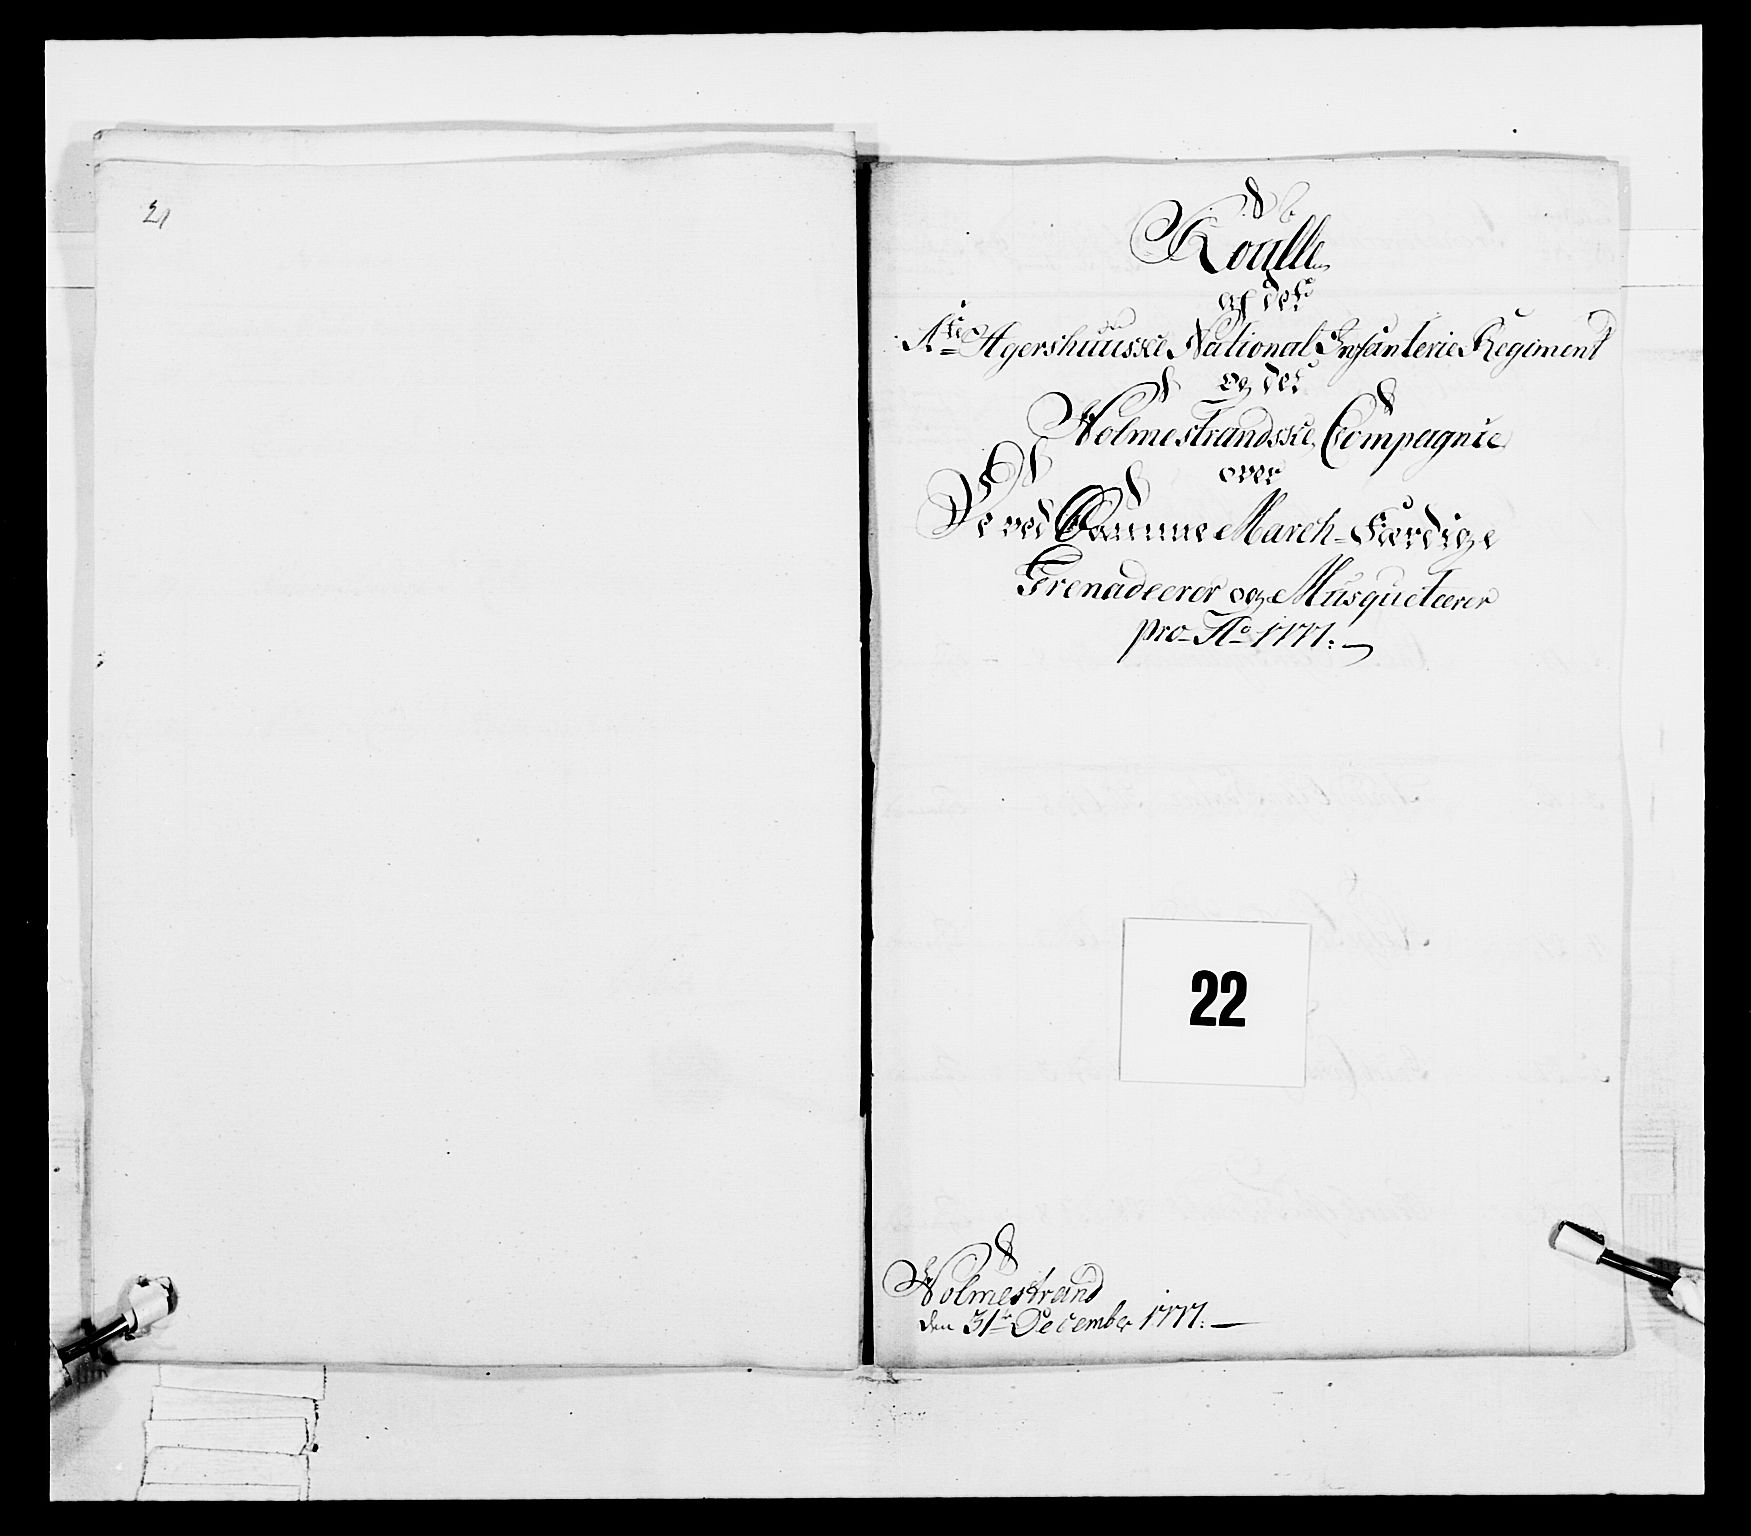 21
Roulle
af det
1te Agershuusske National Infanterie Regiment
og det
Holmestrandsske Compagnie
over
De ved Samme March-Færdige
Grenadeerer og Musqueterer
pro Ao 1777.
22
Holmestrand
den 31te December 1777.